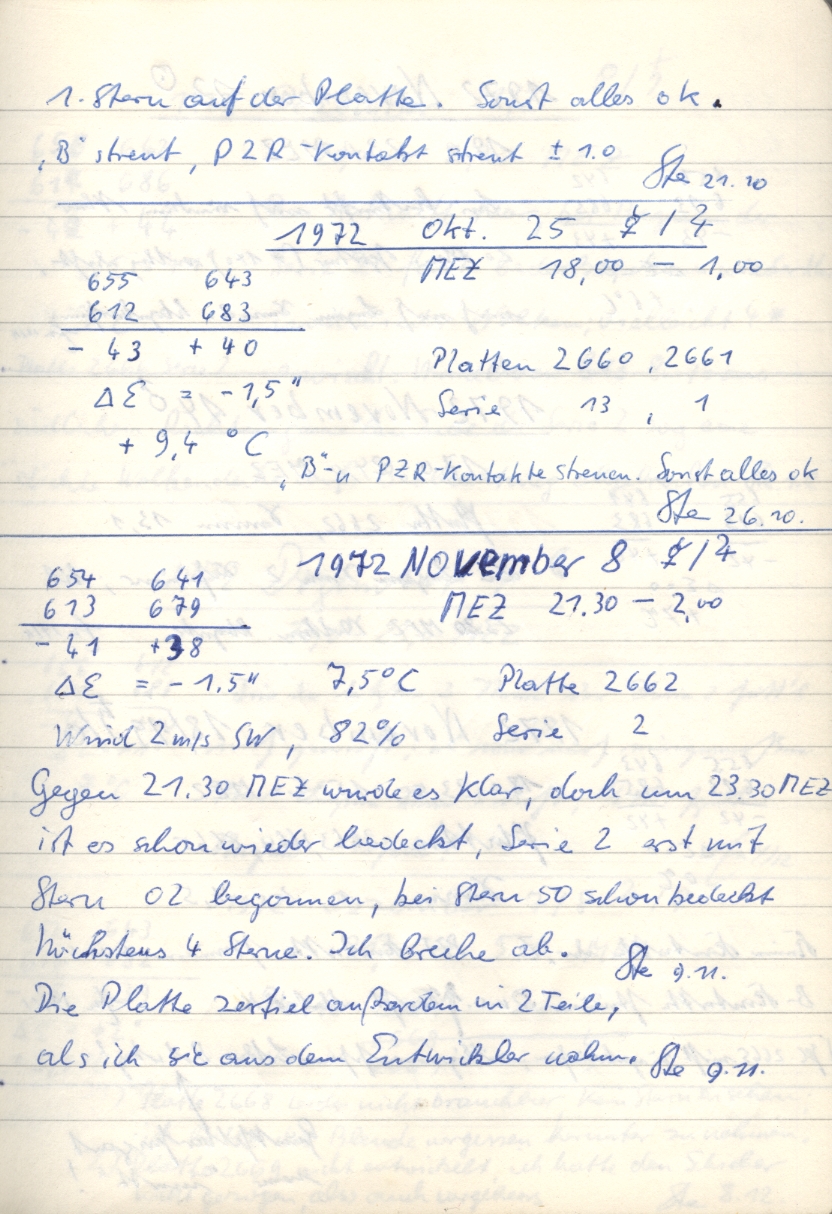 1. Stern auf der Platte. Sonst alles ok.
"B" streut, PZR-Kontakt streut ± 1.0
Ste 21.10
1972 Okt. 25 ☿/♃
655 643 MEZ 18,00 – 1,00
612 683
- 43 + 40 Platten 2660, 2661
Δε = -1,5" Serie 13, 1
+ 9,4 °C
"B"- u PZR-Kontakte streuen. Sonst alles ok
Ste 26.10.
1972 November 8 ☿/♃
654 641
613 679 MEZ 21.30 – 2,00
- 41 +38
Δε = - 1.5" 7,5°C Platte 2662
Wind 2m/s SW, 82% Serie 2
Gegen 21.30 MEZ wurde es klar, doch um 23.30 MEZ
ist es schon wieder bedeckt, Serie 2 erst mit
Stern 02 begonnen, bei Stern 50 schon bedeckt
höchstens 4 Sterne. Ich breche ab. Ste 9.11.
Die Platte zerfiel außerdem in 2 Teile,
als ich sie aus dem Entwickler nahm. Ste 9.11.